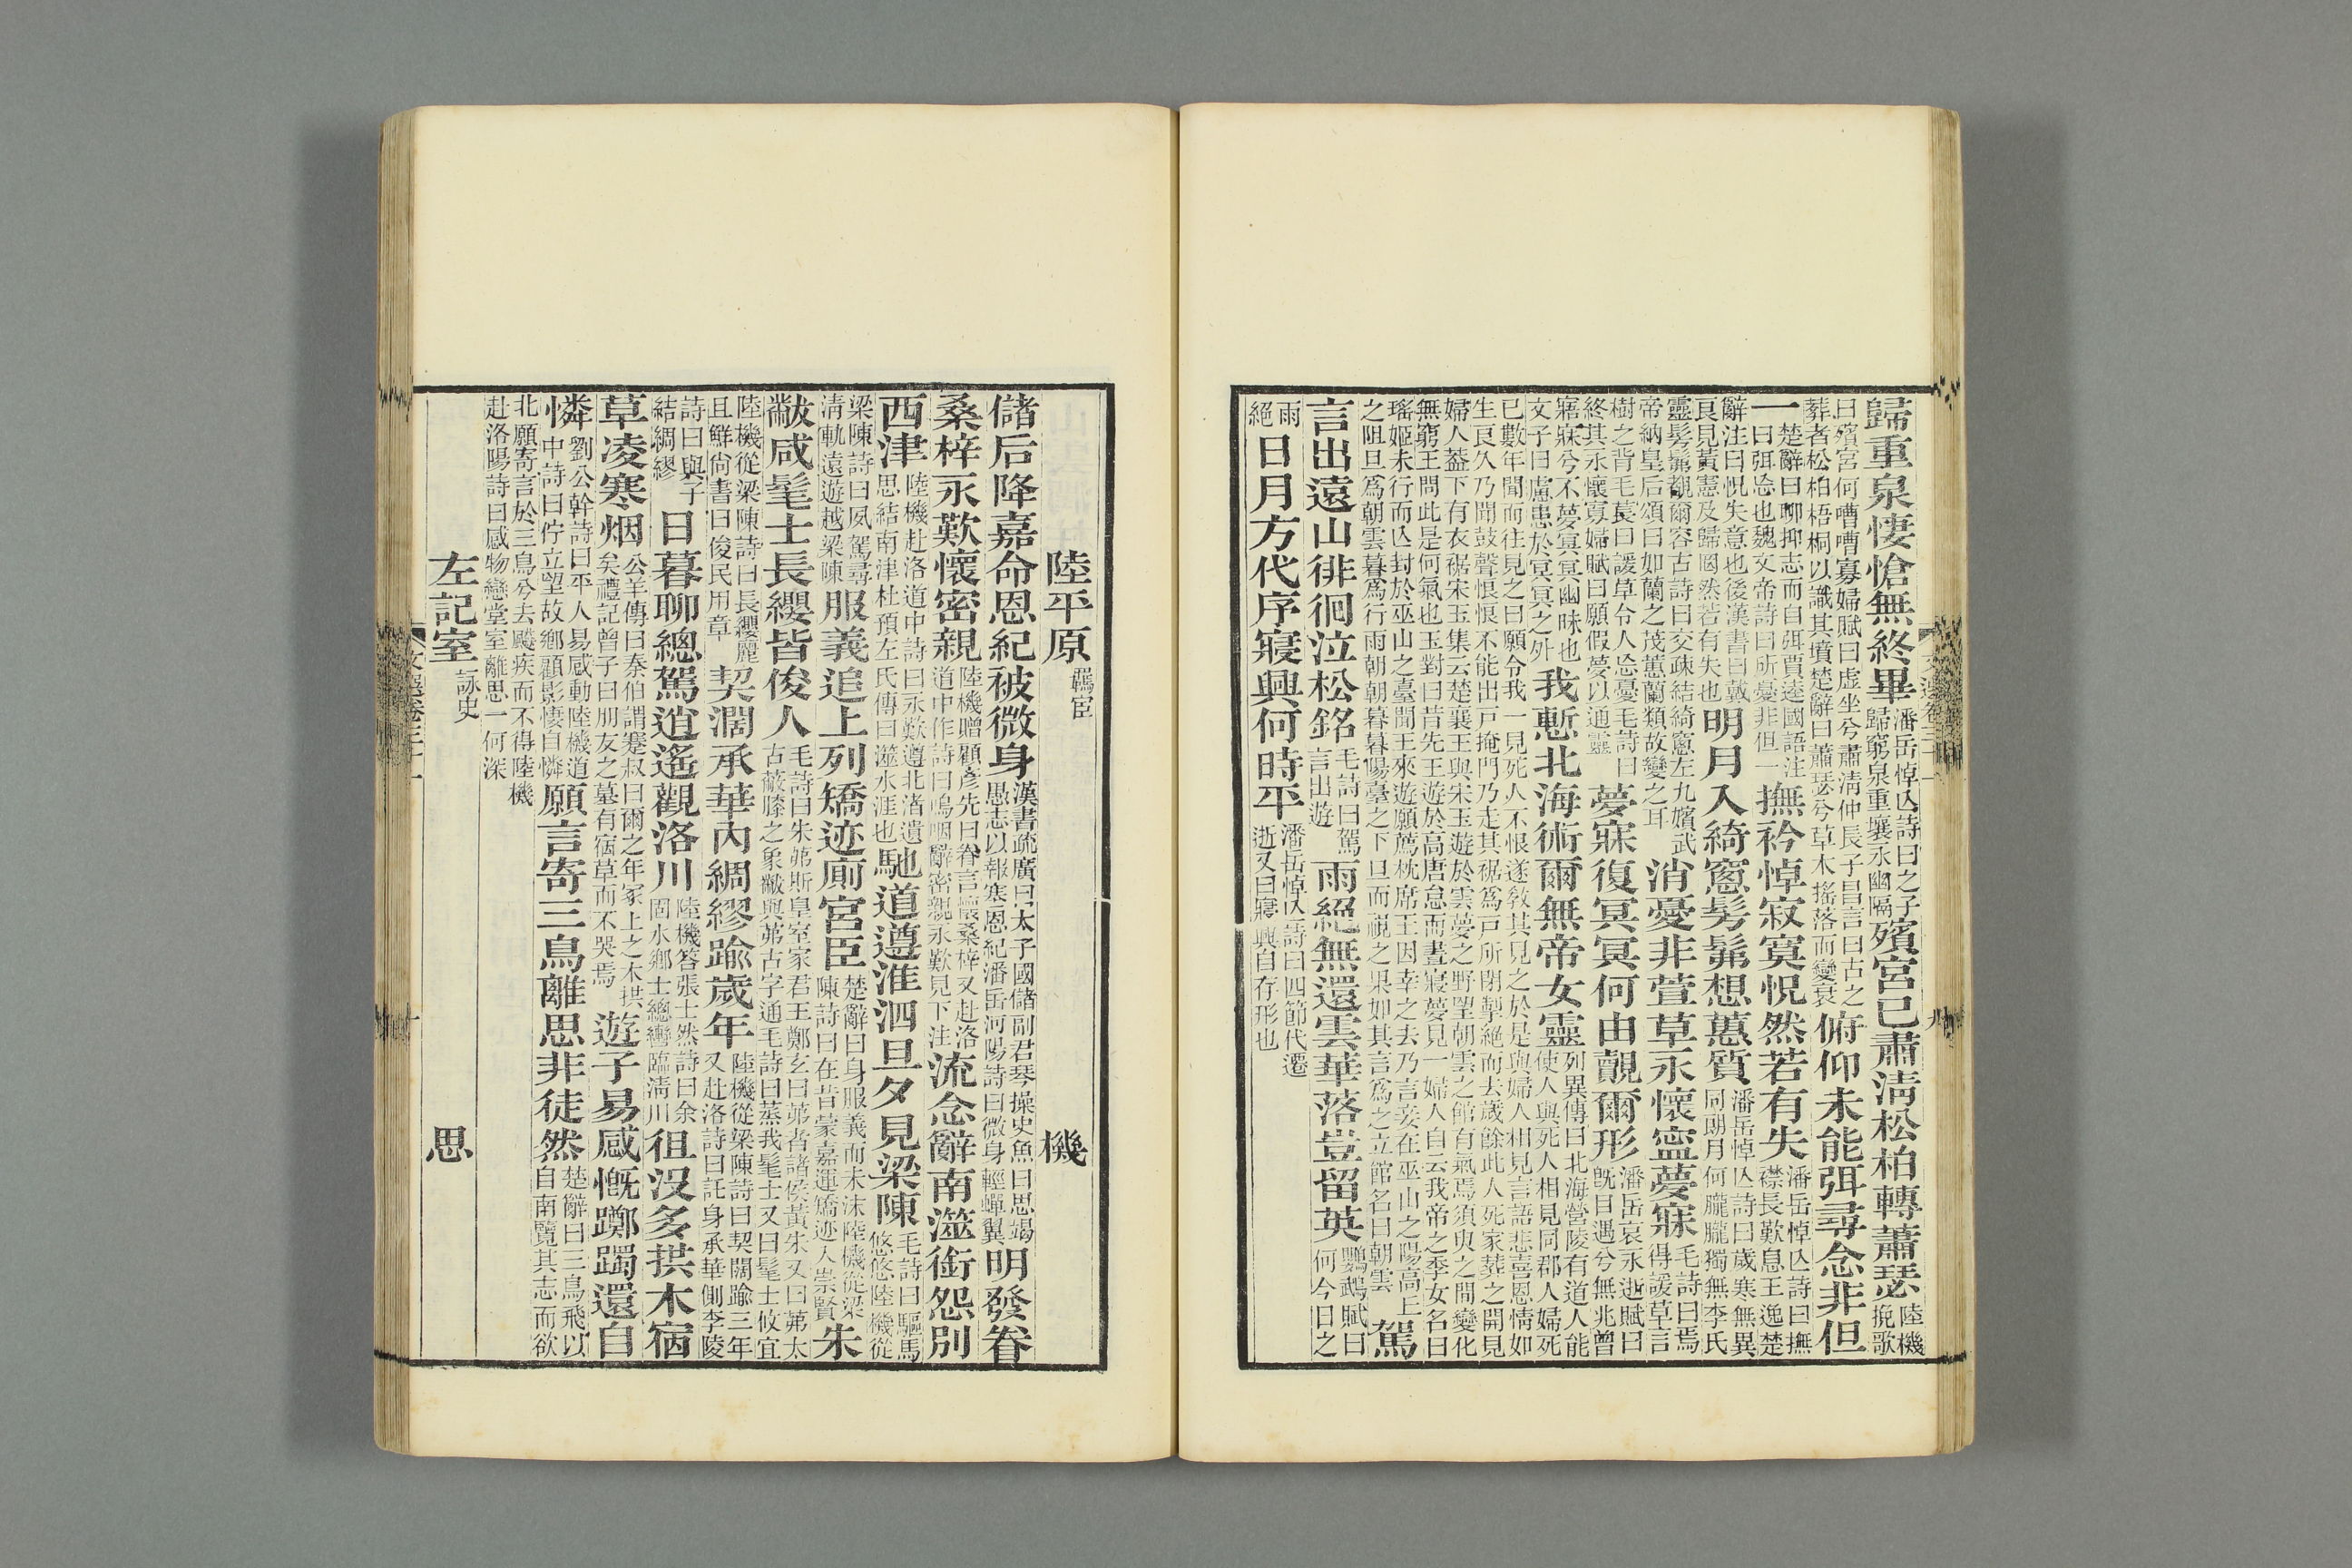 歸重泉悽愴無終畢潘岳悼亾詩曰之子歸窮泉重壤永幽隔殯宮已肅清松柏轉蕭瑟陸機挽歌
曰殯宮何嘈嘈寡婦賦曰虛坐兮肅清仲長子昌言曰古之葬者松柏梧桐以識其墳楚辭曰蕭瑟兮草木搖落而變衰俯仰未能弭尋念非但
一楚辭曰聊抑志而自弭賈逵國語注曰弭忘也魏文帝詩曰所憂非但一撫衿悼寂寞怳然若有失潘岳悼亾詩曰撫襟長歎息王逸楚
辭注曰怳失意也後漢書曰戴良見黃憲及歸罔然若有失也明月入綺窻髣髴想蕙質潘岳悼亾詩曰歲寒無異同朗月何朧朧獨無李氏
靈髣髴覩爾容古詩曰交疎結綺窻左九嬪武帝納皇后頌曰如蘭之茂蕙蘭類故變之耳消憂非萱草永懷寍夢寐毛詩曰焉得諼草言
樹之背毛萇曰諼草令人忘憂毛詩曰終其永懷寡婦賦曰願假夢以通靈夢寐復冥冥何由覿爾形潘岳哀永逝賦曰旣日遇兮無兆曾
寤寐兮不夢冥冥幽昧也文子曰慮患於冥冥之外我慙北海術爾無帝女靈列異傳曰北海營陵有道人能使人與死人相見同郡人婦死
已數年聞而往見之曰願令我一見死人不恨遂敎其見之於是與婦人相見言語悲喜恩情如生良久乃聞鼓聲恨恨不能出戶掩門乃走其裾爲戶所閉掣絕而去歲餘此人死家葬之開見
婦人葢下有衣裾宋玉集云楚襄王與宋玉遊於雲夢之野望朝雲之館有氣焉須臾之間變化無窮王問此是何氣也玉對曰昔先王遊於高唐怠而晝寢夢見一婦人自云我帝之季女名曰
瑤姬未行而亾封於巫山之臺聞王來遊願薦枕席王因幸之去乃言妾在巫山之陽高上之阻旦爲朝雲暮爲行雨朝朝暮暮陽臺之下旦而視之果如其言爲之立館名曰朝雲駕
言出遠山徘徊泣松銘毛詩曰駕言出遊雨絕無還雲華落豈留英鸚鵡賦曰何今日之
雨絕日月方代序寢興何時平潘岳悼亾詩曰四節代遷逝又曰寢興自存形也
陸平原羈宦機
儲后降嘉命恩紀被微身漢書疏廣曰太子國儲副君琴操史魚曰思竭愚志以報塞恩紀潘岳河陽詩曰微身輕蟬翼明發眷
桑梓永歎懷密親陸機贈顧彥先曰眷言懷桑梓又赴洛道中作詩曰嗚咽辭密親永歎見下注流念辭南澨銜怨別
西津陸機赴洛道中詩曰永歎遵北渚遺思結南津杜預左氏傳曰澨水涯也馳道遵淮泗旦夕見梁陳毛詩曰驅馬悠悠陸機從
梁陳詩曰夙駕尋清軌遠遊越梁陳服義追上列矯迹廁宮臣楚辭曰身服義而未沫陸機從梁陳詩曰在昔蒙嘉運矯迹入崇賢朱
黻咸髦士長纓皆俊人毛詩曰朱芾斯皇室家君王鄭玄曰芾者諸侯黃朱又曰芾太古蔽膝之象黻與芾古字通毛詩曰蒸我髦士又曰髦士攸宜
陸機從梁陳詩曰長纓麗且鮮尙書曰俊民用章契濶承華內綢繆踰歲年陸機從梁陳詩曰契闊踰三年又赴洛詩曰託身承華側李陵
詩曰與子結綢繆日暮聊總駕逍遙觀洛川陸機答張士然詩曰余固水鄉士總轡臨淸川徂沒多拱木宿
草凌寒烟公羊傳曰秦伯謂蹇叔曰爾之年冢上之木拱矣禮記曾子曰朋友之墓有宿草而不哭焉遊子易感慨躑躅還自
憐劉公幹詩曰平人易感動陸機道中詩曰佇立望故鄉顧影悽自憐願言寄三鳥離思非徒然楚辭曰三鳥飛以自南覽其志而欲
北願寄言於三鳥兮去飈疾而不得陸機赴洛陽詩曰感物戀堂室離思一何深
左記室詠史思